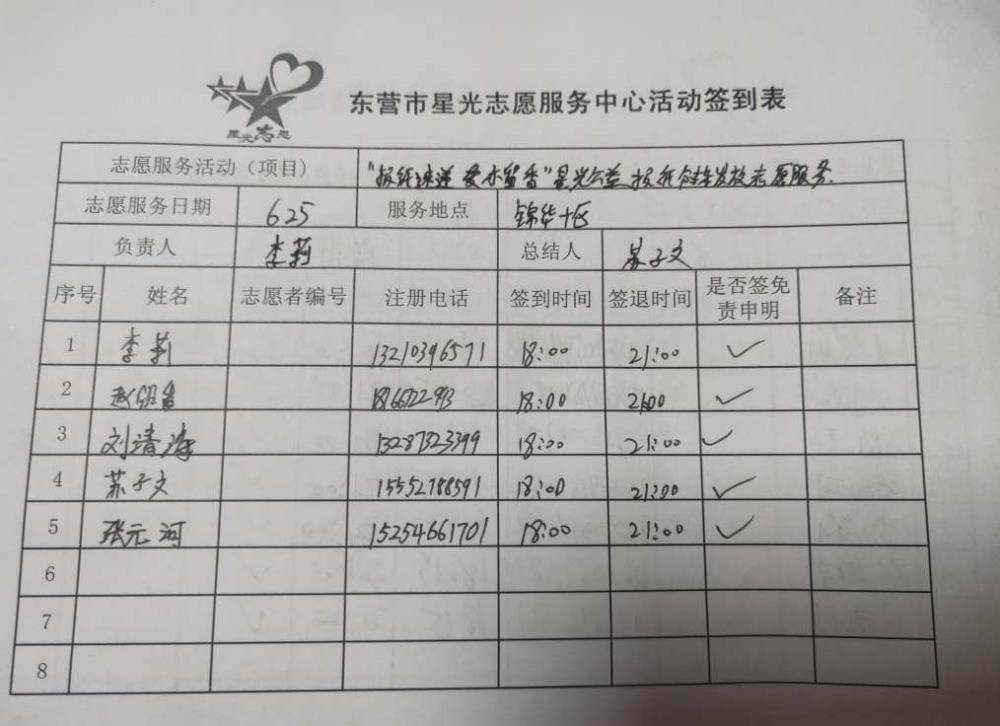 星光志愿
东营市星光志愿服务中心活动签到表
志愿服务活动（项目） 星光公益 志愿服务.
志愿服务日期 6.25 服务地点 锦华十区
负责人 李莉 总结人 苏子文
序号 姓名 志愿者编号 注册电话 签到时间 签退时间 是否签免责申明 备注
1 李莉 13210396571 18:00 21:00 ✓
2 18:00 21:00 ✓
3 刘清海 13287323399 18:00 21:00 ✓
4 苏子文 15552788591 18:00 21:00 ✓
5 张元河 15254661701 18:00 21:00 ✓
6
7
8